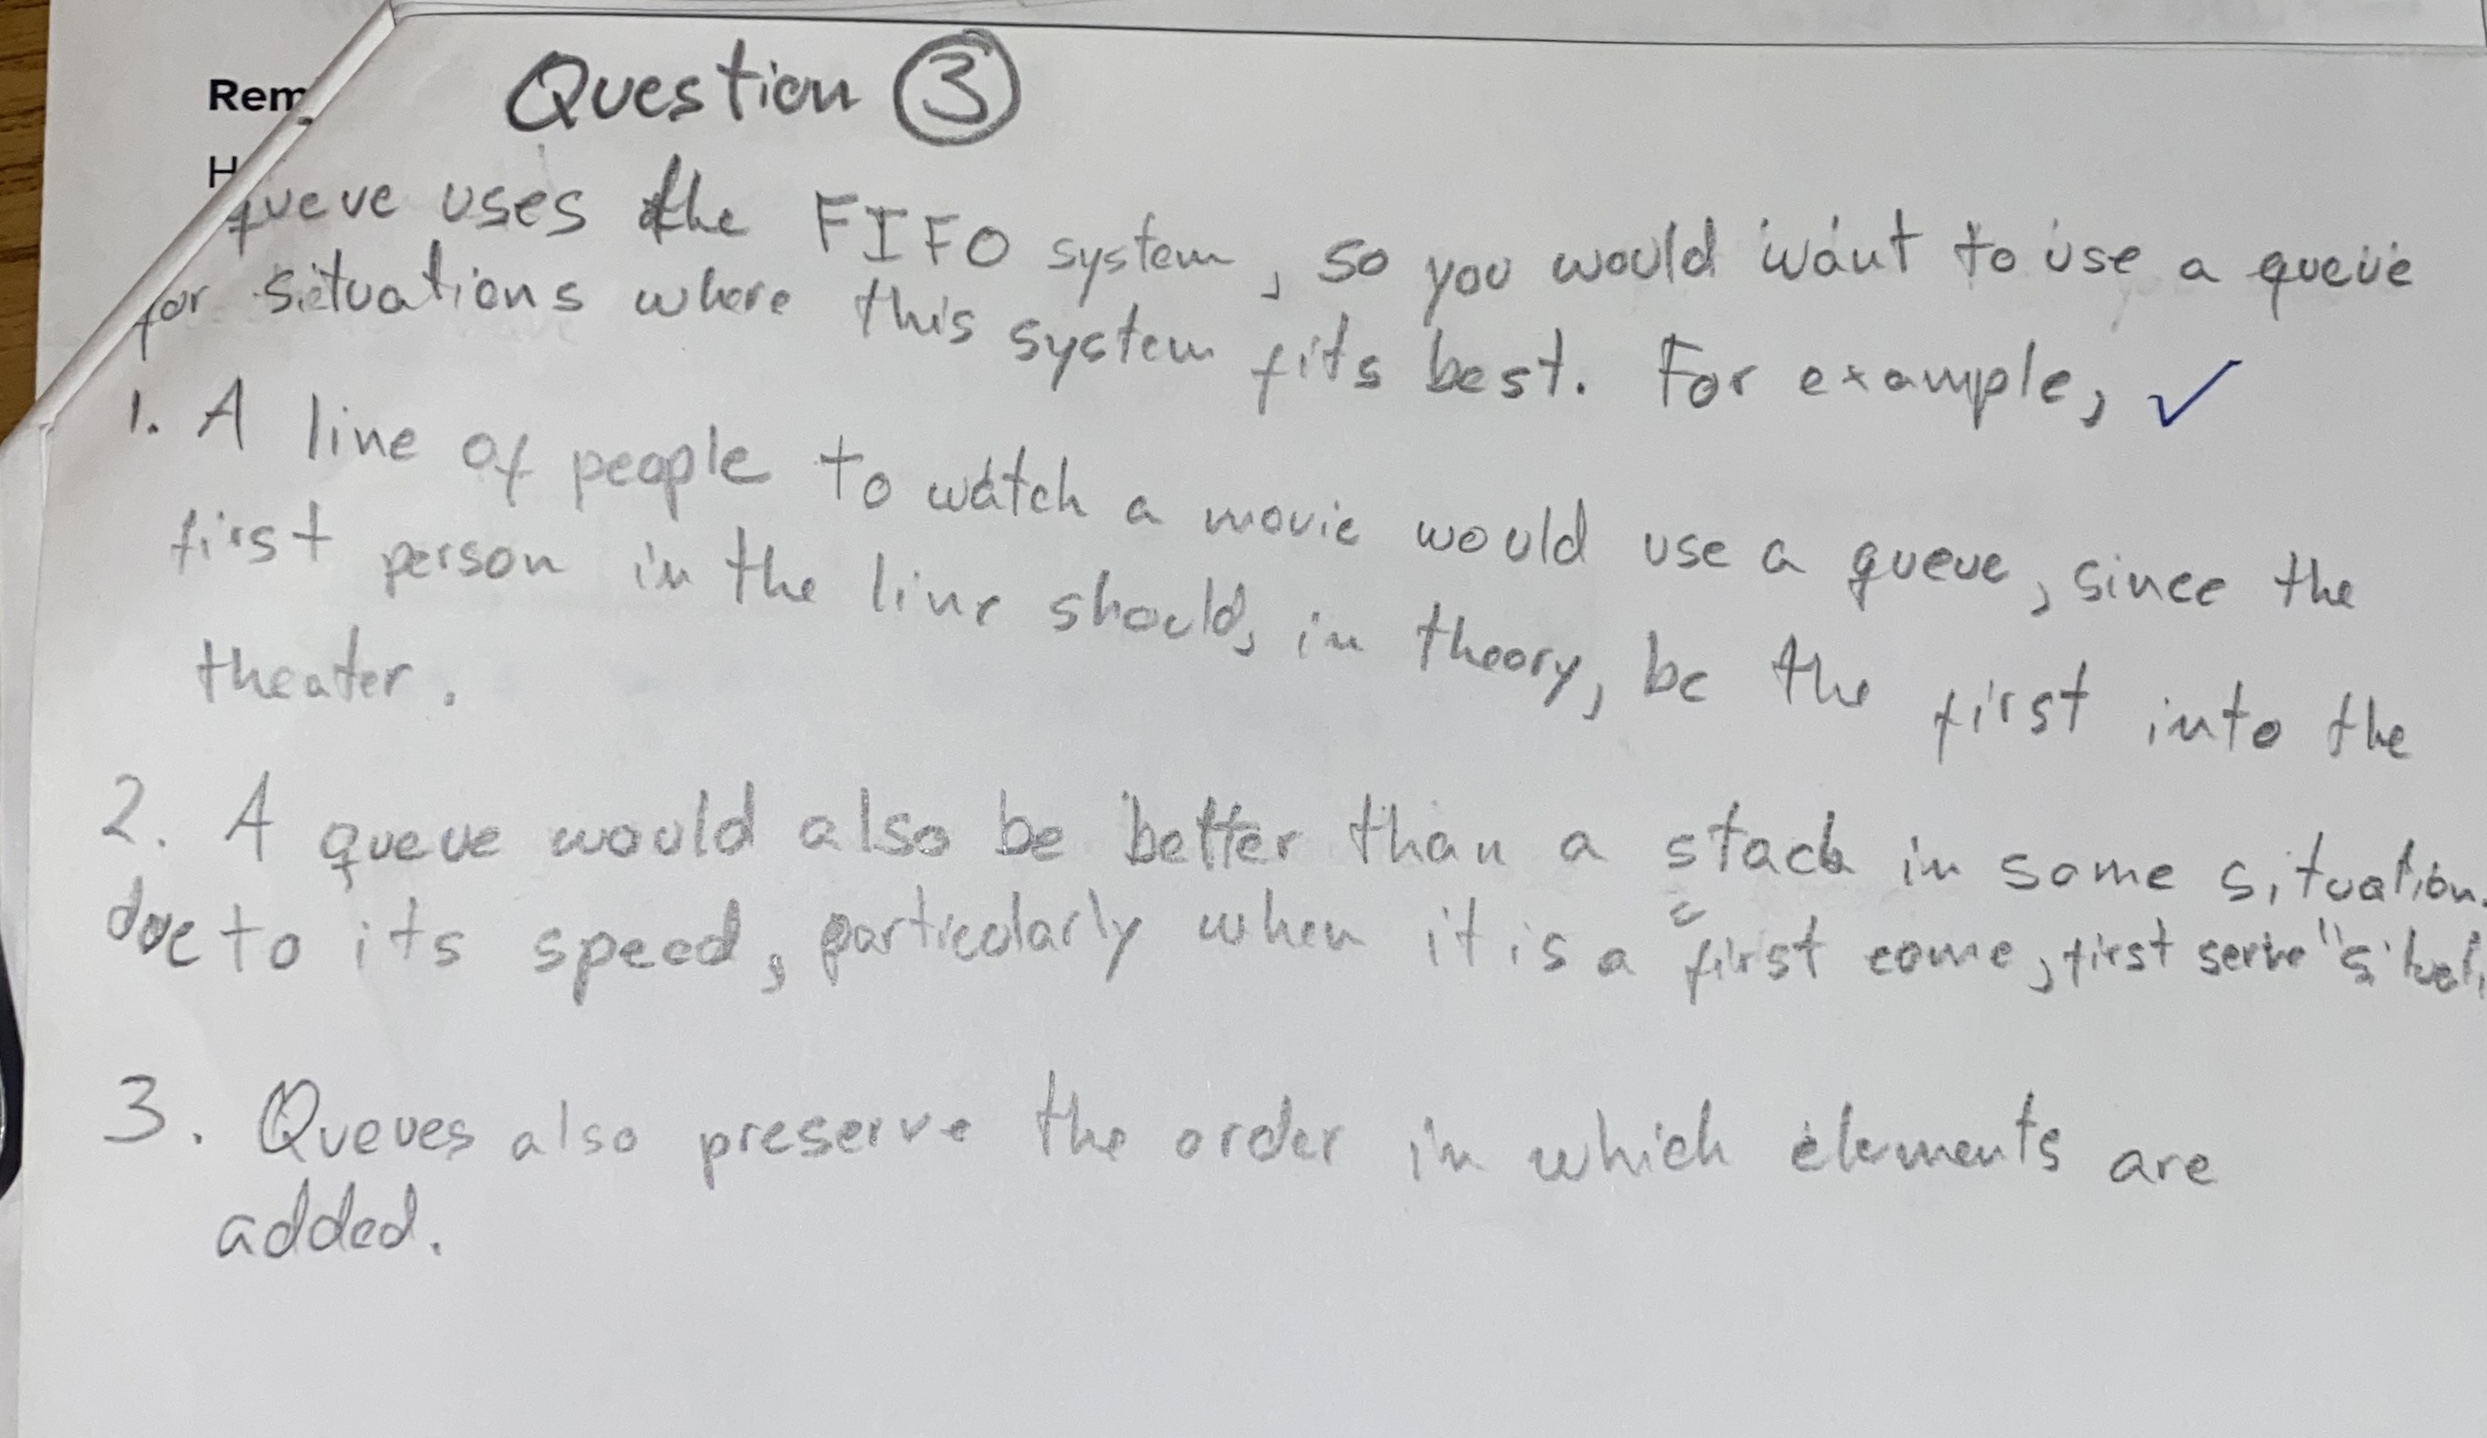 Question ③
Rem
H
queue uses the FIFO system, so you would want to use a queue
for situations where this system fits best. For example, ✓
1. A line of people to watch a movie would use a queue, since the
first person in the line should, in theory, be the first into the
theater.
2. A queue would also be better than a stack in some situation
due to its speed, particularly when it is a "first come, first serve"
3. Queues also preserve the order in which elements are
added.